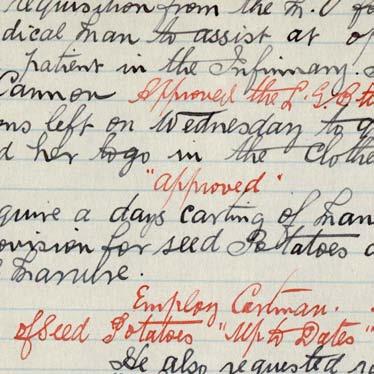 requisition from the M.O fo
dical man to assist at op
patient in the Infirmary.
Cannon Approved the L.G.B to
ons left on Wednesday to g
d her to go in the Clothe
"approved"
quire a days carting of Man
ovision for seed Potatoes a
Manure.
Employ Cartman.
of Seed Potatoes "Up to Dates"
He also requested re